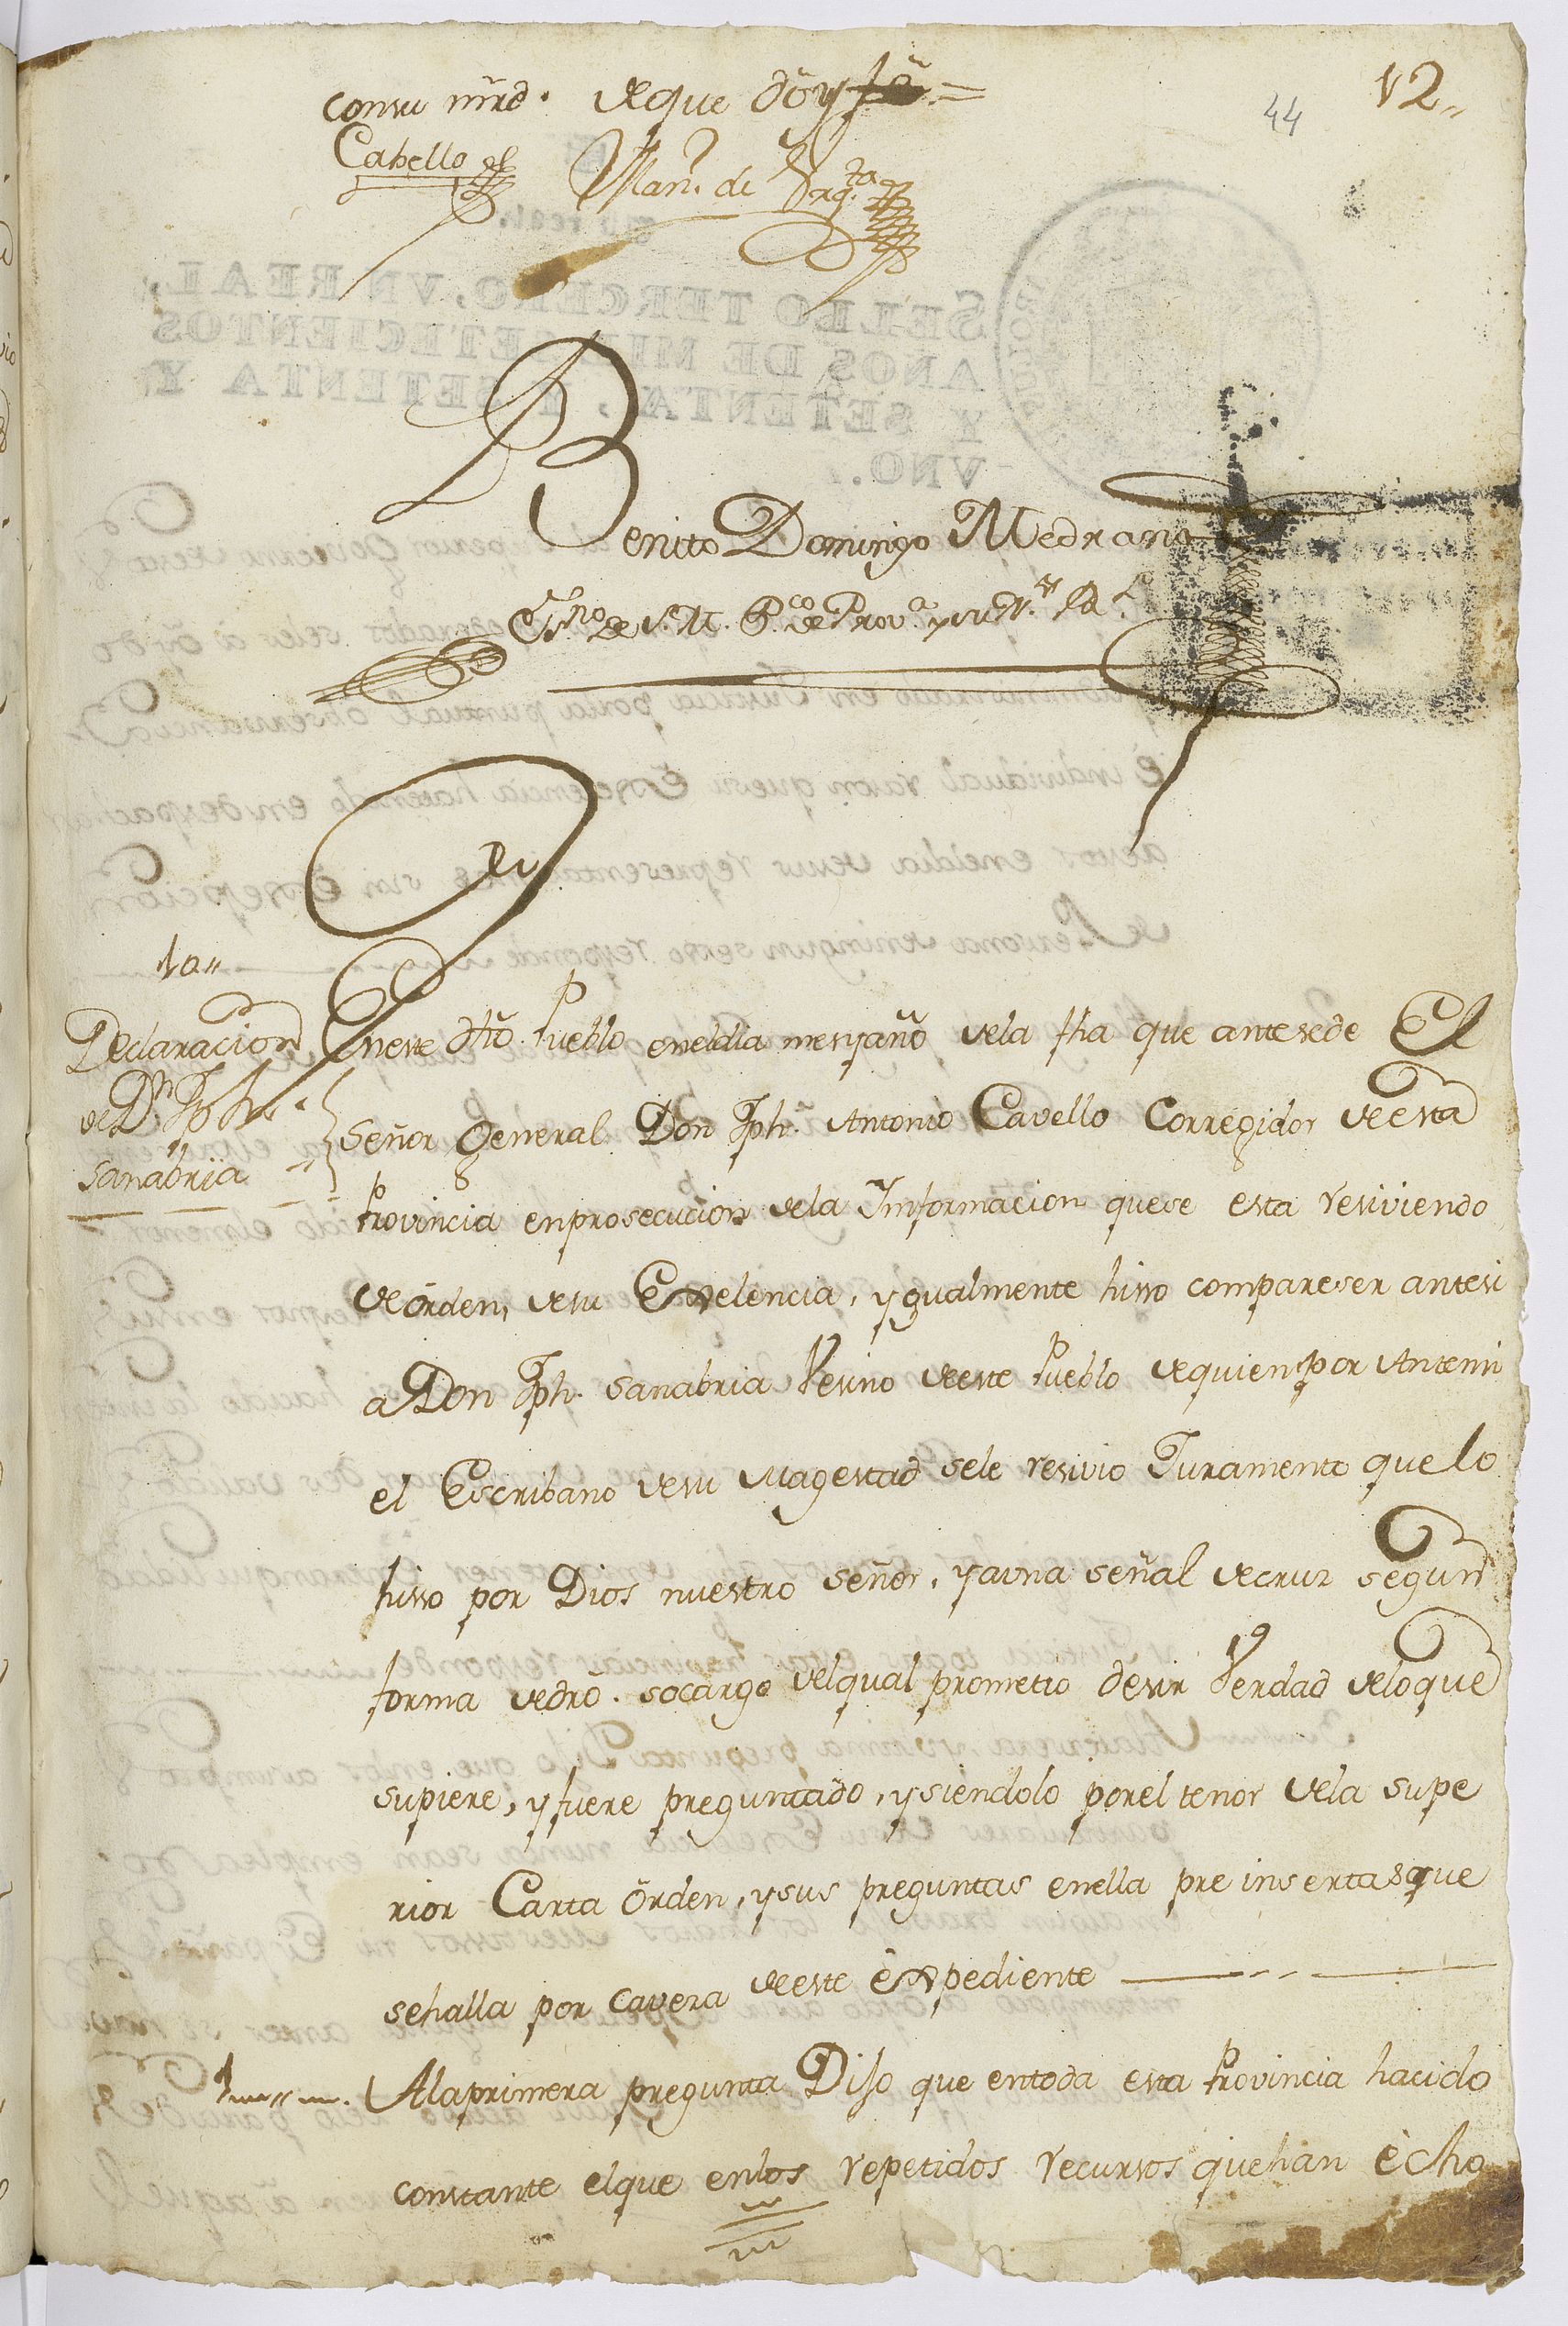 consu mrd. deque doy fe =
44
12
Cabello
Man. de Urq.ta
Benito Domingo Medrano
Esno de S. M. Pco de Prova y su N.
10
Declaracion
de Dn Jph.
Sanabria
Eneste dho. Pueblo eneldia mesyaño dela fha que antesede El
Señor General Don Jph. Antonio Cavello Corregidor de esta
Provincia enprosecucion dela Informacion quese esta resiviendo
de orden, desu Exelencia, ygualmente hiso compareser antesi
a Don Jph. Sanabria Vesino deeste Pueblo dequien por Antemi
el Escribano desu Magestad sele resivio Juramento que lo
hiso por Dios nuestro señor, yauna señal decruz segun
forma dedro. socargo delqual prometio desir Verdad deloque
supiere, yfuere preguntado, ysiendolo porel tenor dela supe
rior Carta orden, ysus preguntas enella pre insertasque
sehalla por cavesa deeste expediente
1
Alaprimera pregunta Dijo que entoda esta Provincia hacido
constante elque enlos repetidos recursos quehan echo